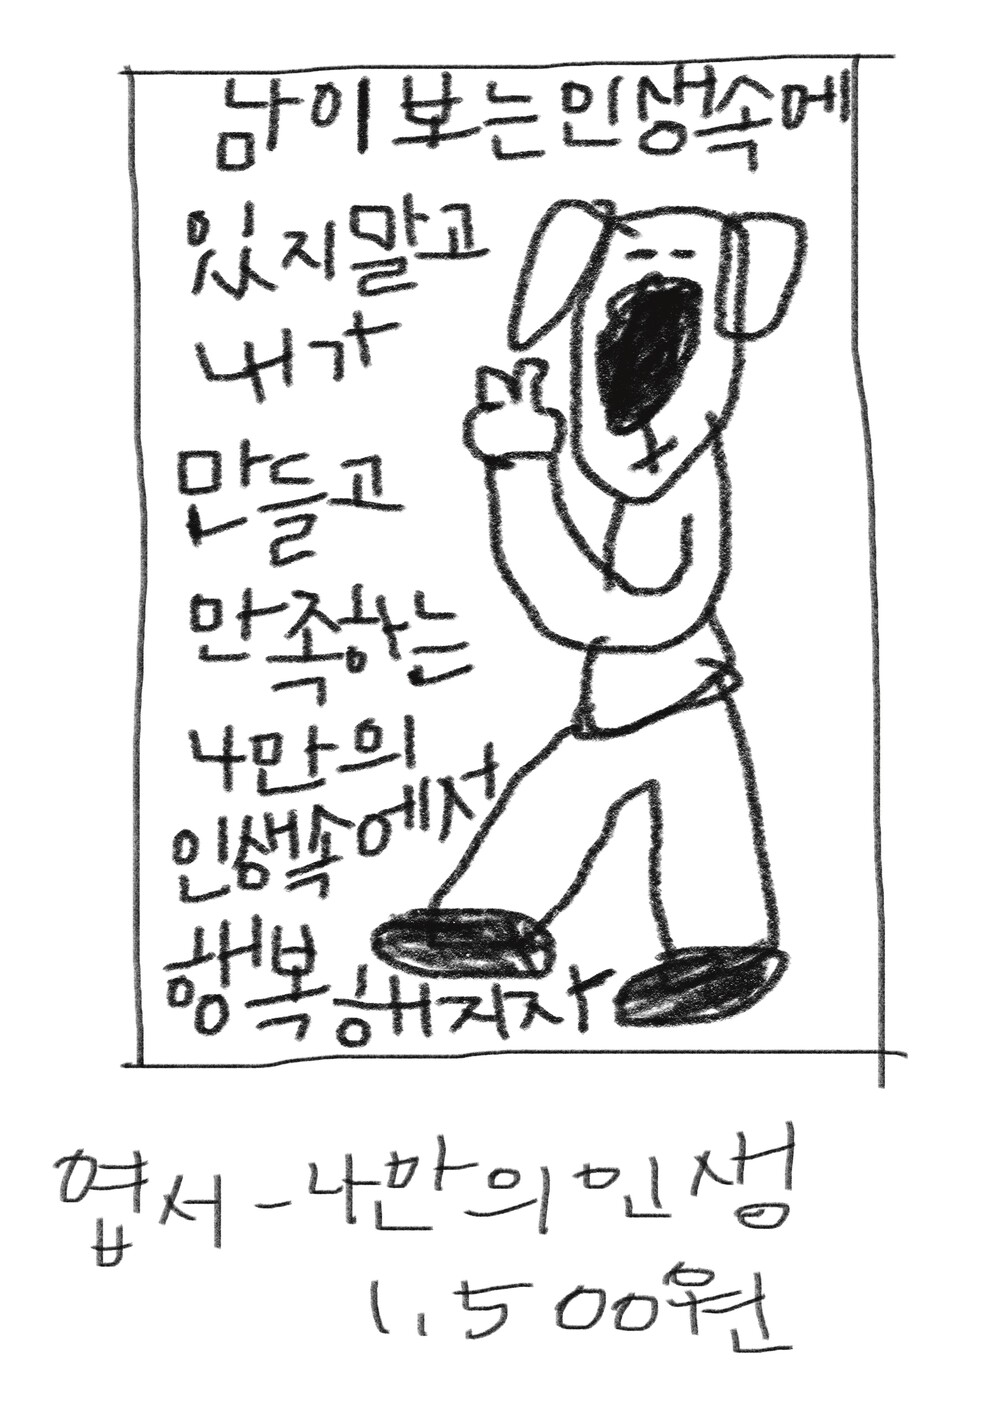 남이 보는 인생속에
있지말고
내가
만들고
만족하는
나만의
인생속에서
행복해지자
엽서 - 나만의 인생
1,500원